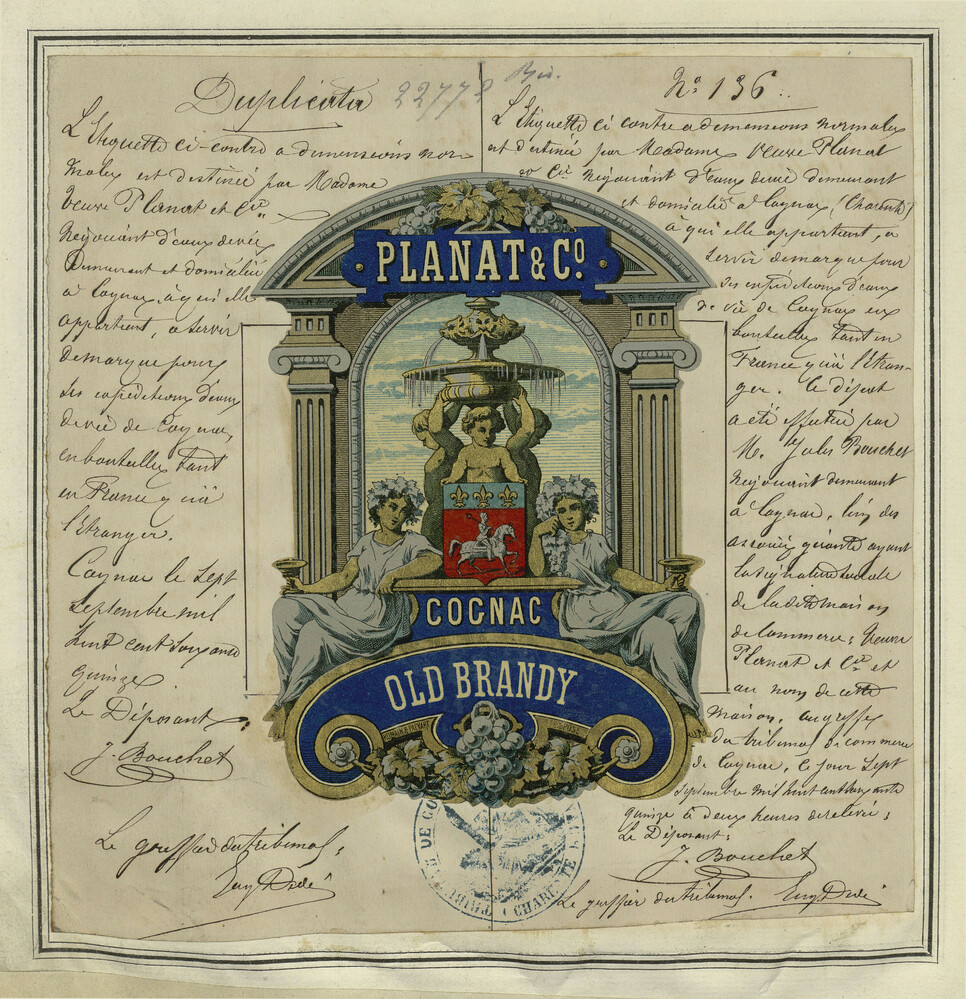 Duplicata
22778
L'Etiquette ci-contre a dimensions nor-
males est destinée par Madame
Veuve Planat et Cie
Négociant d'eaux de vie,
Demeurant et domiciliée
à Cognac, à qui elle
appartient, à servir
de marque pour
ses expéditions d'eaux
de vie de Cognac,
en bouteilles tant
en France qu'à
l'étranger.
Cognac le sept
septembre mil
huit cent soixante
quinze.
Le Déposant
J. Bouchet
Le greffier du tribunal:
Bis.
No 136.
L'Etiquette ci contre a dimensions normales
est destinée par Madame Veuve Planat
et Cie Négociant d'eaux de vie demeurant
et domiciliée à Cognac, (Charente)
à qui elle appartient, à
servir de marque pour
ses expéditions d'eaux
de vie de Cognac en
bouteilles tant en
France qu'à l'étran-
ger. Ce dépôt
a été effectué par
M. Jules Bouchet
Négociant demeurant
à Cognac, l'un des
associés gérants ayant
la signature sociale
de la dite maison
de Commerce: Veuve
Planat et Cie et
au nom de cette
maison, au greffe
du tribunal de commerce
de Cognac, le jour sept
septembre mil huit cent soixante
quinze à deux heures de relevée:
Le Déposant:
J. Bouchet
Le greffier du tribunal.
PLANAT & Co.
COGNAC
OLD BRANDY